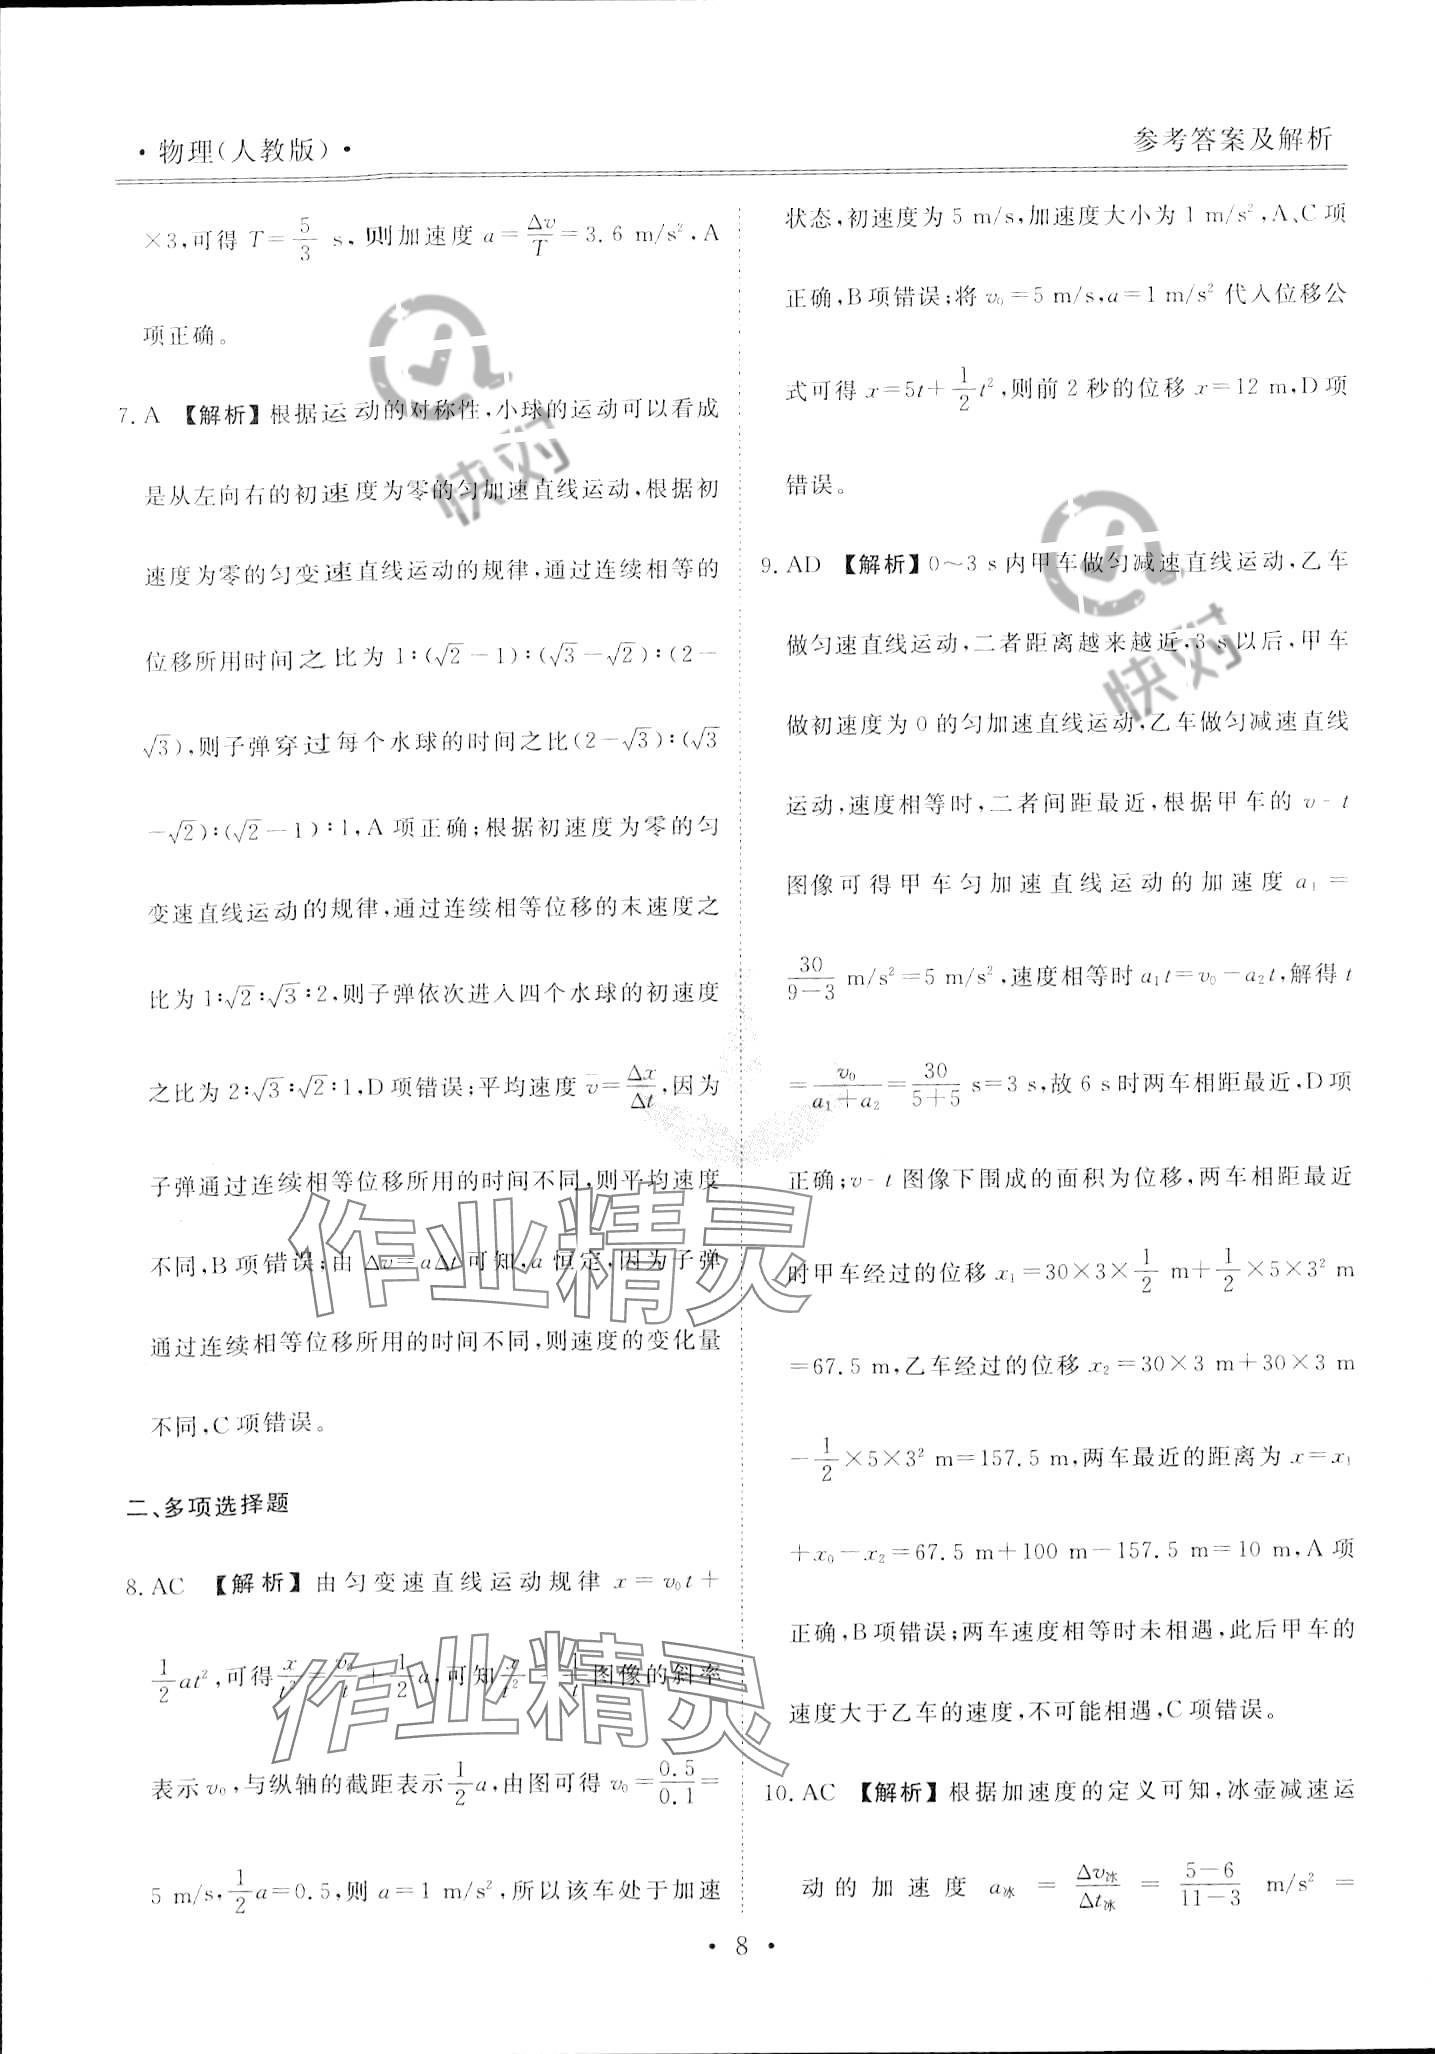 ·物理(人教版)·
参考答案及解析
×3,可得 T=5/3 s,则加速度 a=Δv/T=3.6 m/s²,A
项正确。
7. A 【解析】根据运动的对称性,小球的运动可以看成
是从左向右的初速度为零的匀加速直线运动,根据初
速度为零的匀变速直线运动的规律,通过连续相等的
位移所用时间之比为 1∶(√2－1)∶(√3－√2)∶(2－
√3),则子弹穿过每个水球的时间之比(2－√3)∶(√3
－√2)∶(√2－1)∶1,A 项正确;根据初速度为零的匀
变速直线运动的规律,通过连续相等位移的末速度之
比为 1∶√2∶√3∶2,则子弹依次进入四个水球的初速度
之比为 2∶√3∶√2∶1,D 项错误;平均速度 v̄=Δx/Δt,因为
子弹通过连续相等位移所用的时间不同,则平均速度
不同,B 项错误;由 Δv=aΔt 可知,a 恒定,因为子弹
通过连续相等位移所用的时间不同,则速度的变化量
不同,C 项错误。
二、多项选择题
8. AC 【解析】由匀变速直线运动规律 x=v₀t+
1/2at²,可得x/t²=v₀/t+1/2a,可知x/t²－1/t图像的斜率
表示 v₀,与纵轴的截距表示1/2a,由图可得 v₀=0.5/0.1=
5 m/s,1/2a=0.5,则 a=1 m/s²,所以该车处于加速
状态,初速度为 5 m/s,加速度大小为 1 m/s²,A、C 项
正确,B 项错误;将 v₀=5 m/s,a=1 m/s² 代入位移公
式可得 x=5t+1/2t²,则前 2 秒的位移 x=12 m,D 项
错误。
9. AD 【解析】0～3 s 内甲车做匀减速直线运动,乙车
做匀速直线运动,二者距离越来越近,3 s 以后,甲车
做初速度为 0 的匀加速直线运动,乙车做匀减速直线
运动,速度相等时,二者间距最近,根据甲车的 v-t
图像可得甲车匀加速直线运动的加速度 a₁=
30/(9－3) m/s²=5 m/s²,速度相等时 a₁t=v₀－a₂t,解得 t
=v₀/(a₁+a₂)=30/(5+5) s=3 s,故 6 s 时两车相距最近,D 项
正确;v-t 图像下围成的面积为位移,两车相距最近
时甲车经过的位移 x₁=30×3×1/2 m+1/2×5×3² m
=67.5 m,乙车经过的位移 x₂=30×3 m+30×3 m
－1/2×5×3² m=157.5 m,两车最近的距离为 x=x₁
+x₀－x₂=67.5 m+100 m－157.5 m=10 m,A 项
正确,B 项错误;两车速度相等时未相遇,此后甲车的
速度大于乙车的速度,不可能相遇,C 项错误。
10. AC 【解析】根据加速度的定义可知,冰壶减速运
动的加速度 a冰=Δv冰/Δt冰=(5－6)/(11－3) m/s²=
·8·
快对
快对
作业精灵
作业精灵